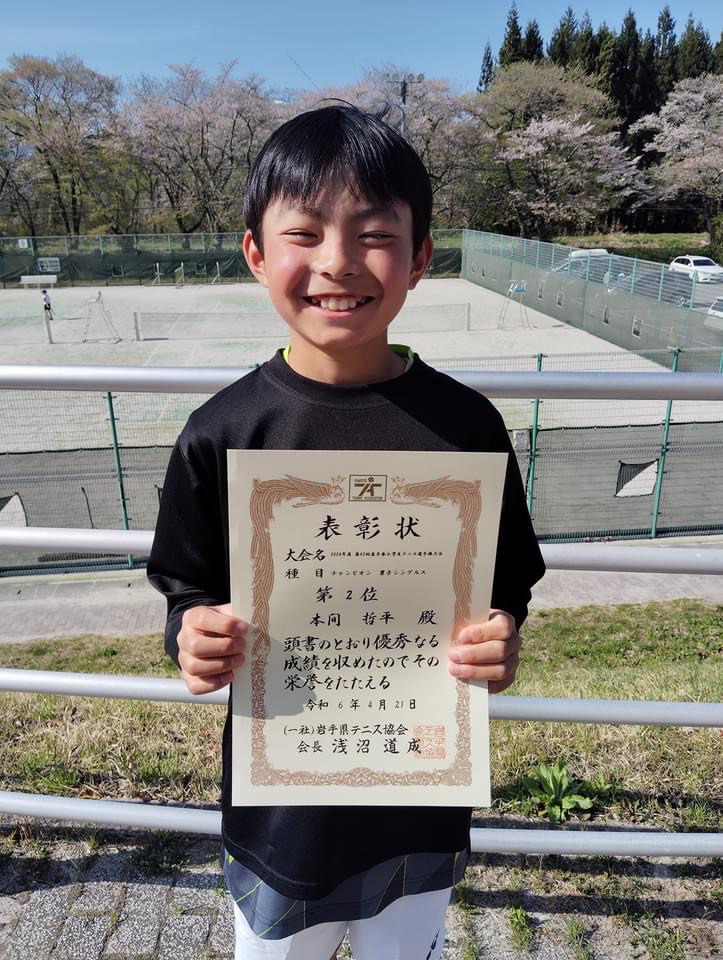 表彰状
大会名 2024年度 第43回岩手県小学生テニス選手権大会
種目 チャンピオン 男子シングルス
第 2 位
本間 哲平 殿
頭書のとおり優秀なる
成績を収めたのでその
栄誉をたたえる
令和 6 年 4 月 21 日
(一社)岩手県テニス協会
会長 浅沼 道成